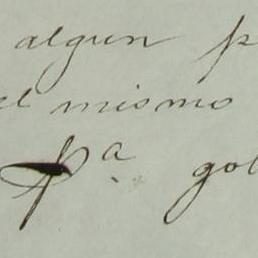 algun p
el mismo
pª gol